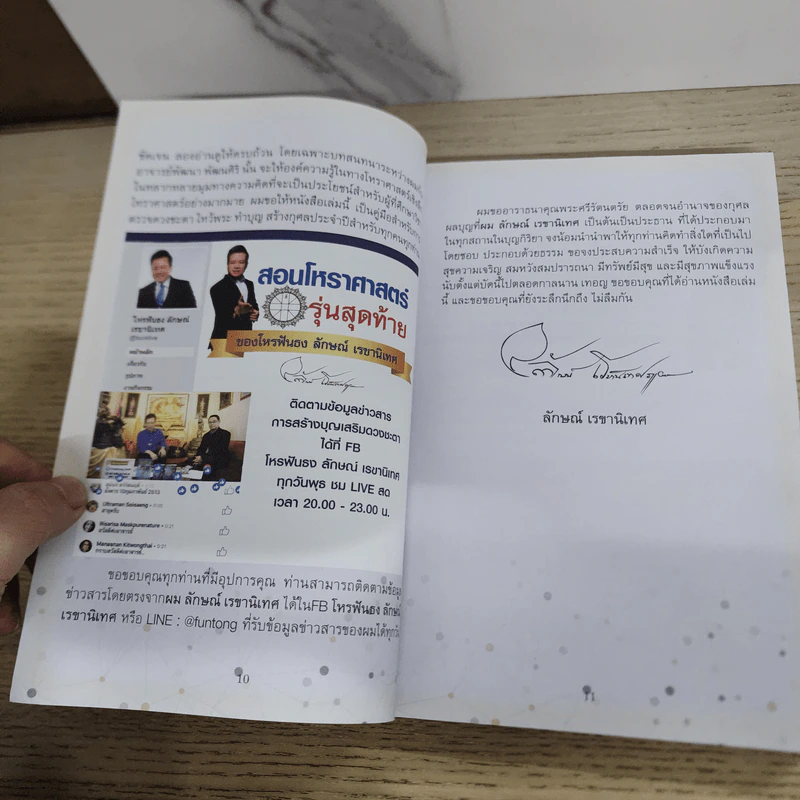 ชัดเจน ลองอ่านดูให้ครบถ้วน โดยเฉพาะบทสนทนาระหว่างผมกับ
อาจารย์พัฒนา พัฒนศิริ นั้น จะให้องค์ความรู้ในทางโหราศาสตร์
ในหลากหลายมุมทางความคิดที่จะเป็นประโยชน์สำหรับผู้ที่ศึกษา
โหราศาสตร์อย่างมากมาย ผมขอให้หนังสือเล่มนี้ เป็นคู่มือสำหรับ
ตรวจดวงชะตา ไหว้พระ ทำบุญ สร้างกุศลประจำปีสำหรับทุกคนทุกท่าน
สอนโหราศาสตร์
รุ่นสุดท้าย
ของโหรฟันธง ลักษณ์ เรขานิเทศ
โหรฟันธง ลักษณ์
เรขานิเทศ
หน้าหลัก
เกี่ยวกับ
รูปภาพ
ติดตามข้อมูลข่าวสาร
การสร้างบุญเสริมดวงชะตา
ได้ที่ FB
โหรฟันธง ลักษณ์ เรขานิเทศ
ทุกวันพุธ ชม LIVE สด
เวลา 20.00 - 23.00 น.
Ultraman Saisaeng
สาธุครับ
สวัสดีค่ะอาจารย์
Manaanun Kitwongthai
กราบสวัสดีค่ะอาจารย์..
ขอขอบคุณทุกท่านที่มีอุปการคุณ ท่านสามารถติดตามข้อมูล
ข่าวสารโดยตรงจากผม ลักษณ์ เรขานิเทศ ได้ในFB โหรฟันธง ลักษณ์
เรขานิเทศ หรือ LINE : @funtong ที่รับข้อมูลข่าวสารของผมได้ทุกวัน
10
ผมขออาราธนาคุณพระศรีรัตนตรัย ตลอดจนอำนาจของกุศล
ผลบุญที่ผม ลักษณ์ เรขานิเทศ เป็นต้นเป็นประธาน ที่ได้ประกอบมา
ในทุกสถานในบุญกิริยา จงน้อมนำนำพาให้ทุกท่านคิดทำสิ่งใดที่เป็นไป
โดยชอบ ประกอบด้วยธรรม ขอจงประสบความสำเร็จ ให้บังเกิดความ
สุขความเจริญ สมหวังสมปรารถนา มีทรัพย์มีสุข และมีสุขภาพแข็งแรง
นับตั้งแต่บัดนี้ไปตลอดกาลนาน เทอญ ขอขอบคุณที่ได้อ่านหนังสือเล่ม
นี้ และขอขอบคุณที่ยังระลึกนึกถึง ไม่ลืมกัน
ลักษณ์ เรขานิเทศ
11